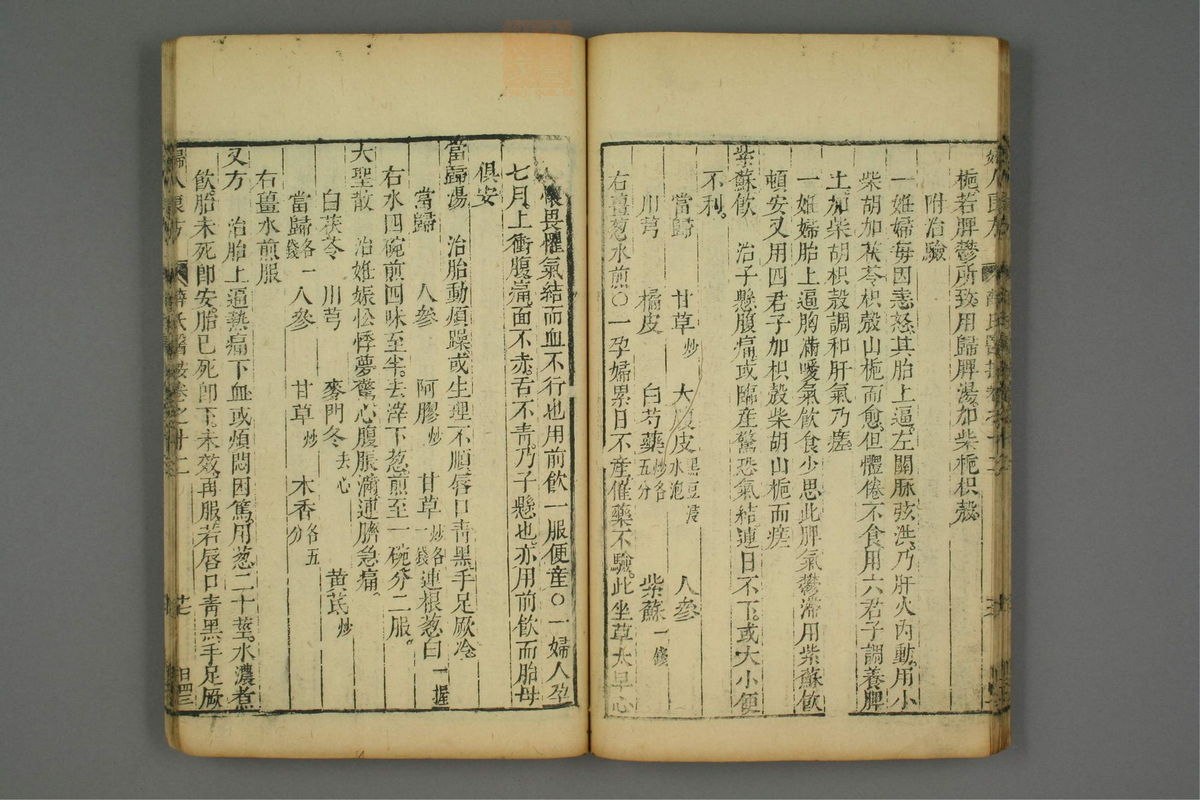 梔若脾鬱所致用歸脾湯加柴梔枳殼
附治驗
一姙婦每因恚怒其胎上逼左關脉弦洪乃肝火內動用小
柴胡加茯苓枳殼山梔而愈但體倦不食用六君子調養脾
土加柴胡枳殼調和肝氣乃瘥
一姙婦胎上逼胸滿噯氣飲食少思此脾氣鬱滯用紫蘇飲
頓安又用四君子加枳殼柴胡山梔而瘥
紫蘇飲 治子懸腹痛或臨產驚恐氣結連日不下或大小便
不利
當歸 甘草炒 大腹皮黑豆浸水泡 人參
川芎 橘皮 白芍藥炒各五分 紫蘇一錢
右薑葱水煎○一孕婦累日不產催藥不驗此坐草太早心
懷畏懼氣結而血不行也用前飲一服便産○一婦人孕
七月上衝腹痛面不赤舌不青乃子懸也亦用前飲而胎母
俱安
當歸湯 治胎動煩躁或生理不順唇口青黑手足厥冷
當歸 人參 阿膠炒 甘草炒各一錢 連根葱白一握
右水四碗煎四味至半去滓下葱煎至一碗分二服
大聖散 治姙娠忪悸夢驚心腹脹滿連臍急痛
白茯苓 川芎 麥門冬去心 黃芪炒
當歸各一錢 人參 甘草炒 木香各五分
右薑水煎服
又方 治胎上逼熱痛下血或煩悶困篤用葱二十莖水濃煮
飲胎未死卽安胎已死卽下未效再服若唇口青黑手足厥
婦人良方 薛氏醫按卷之十二